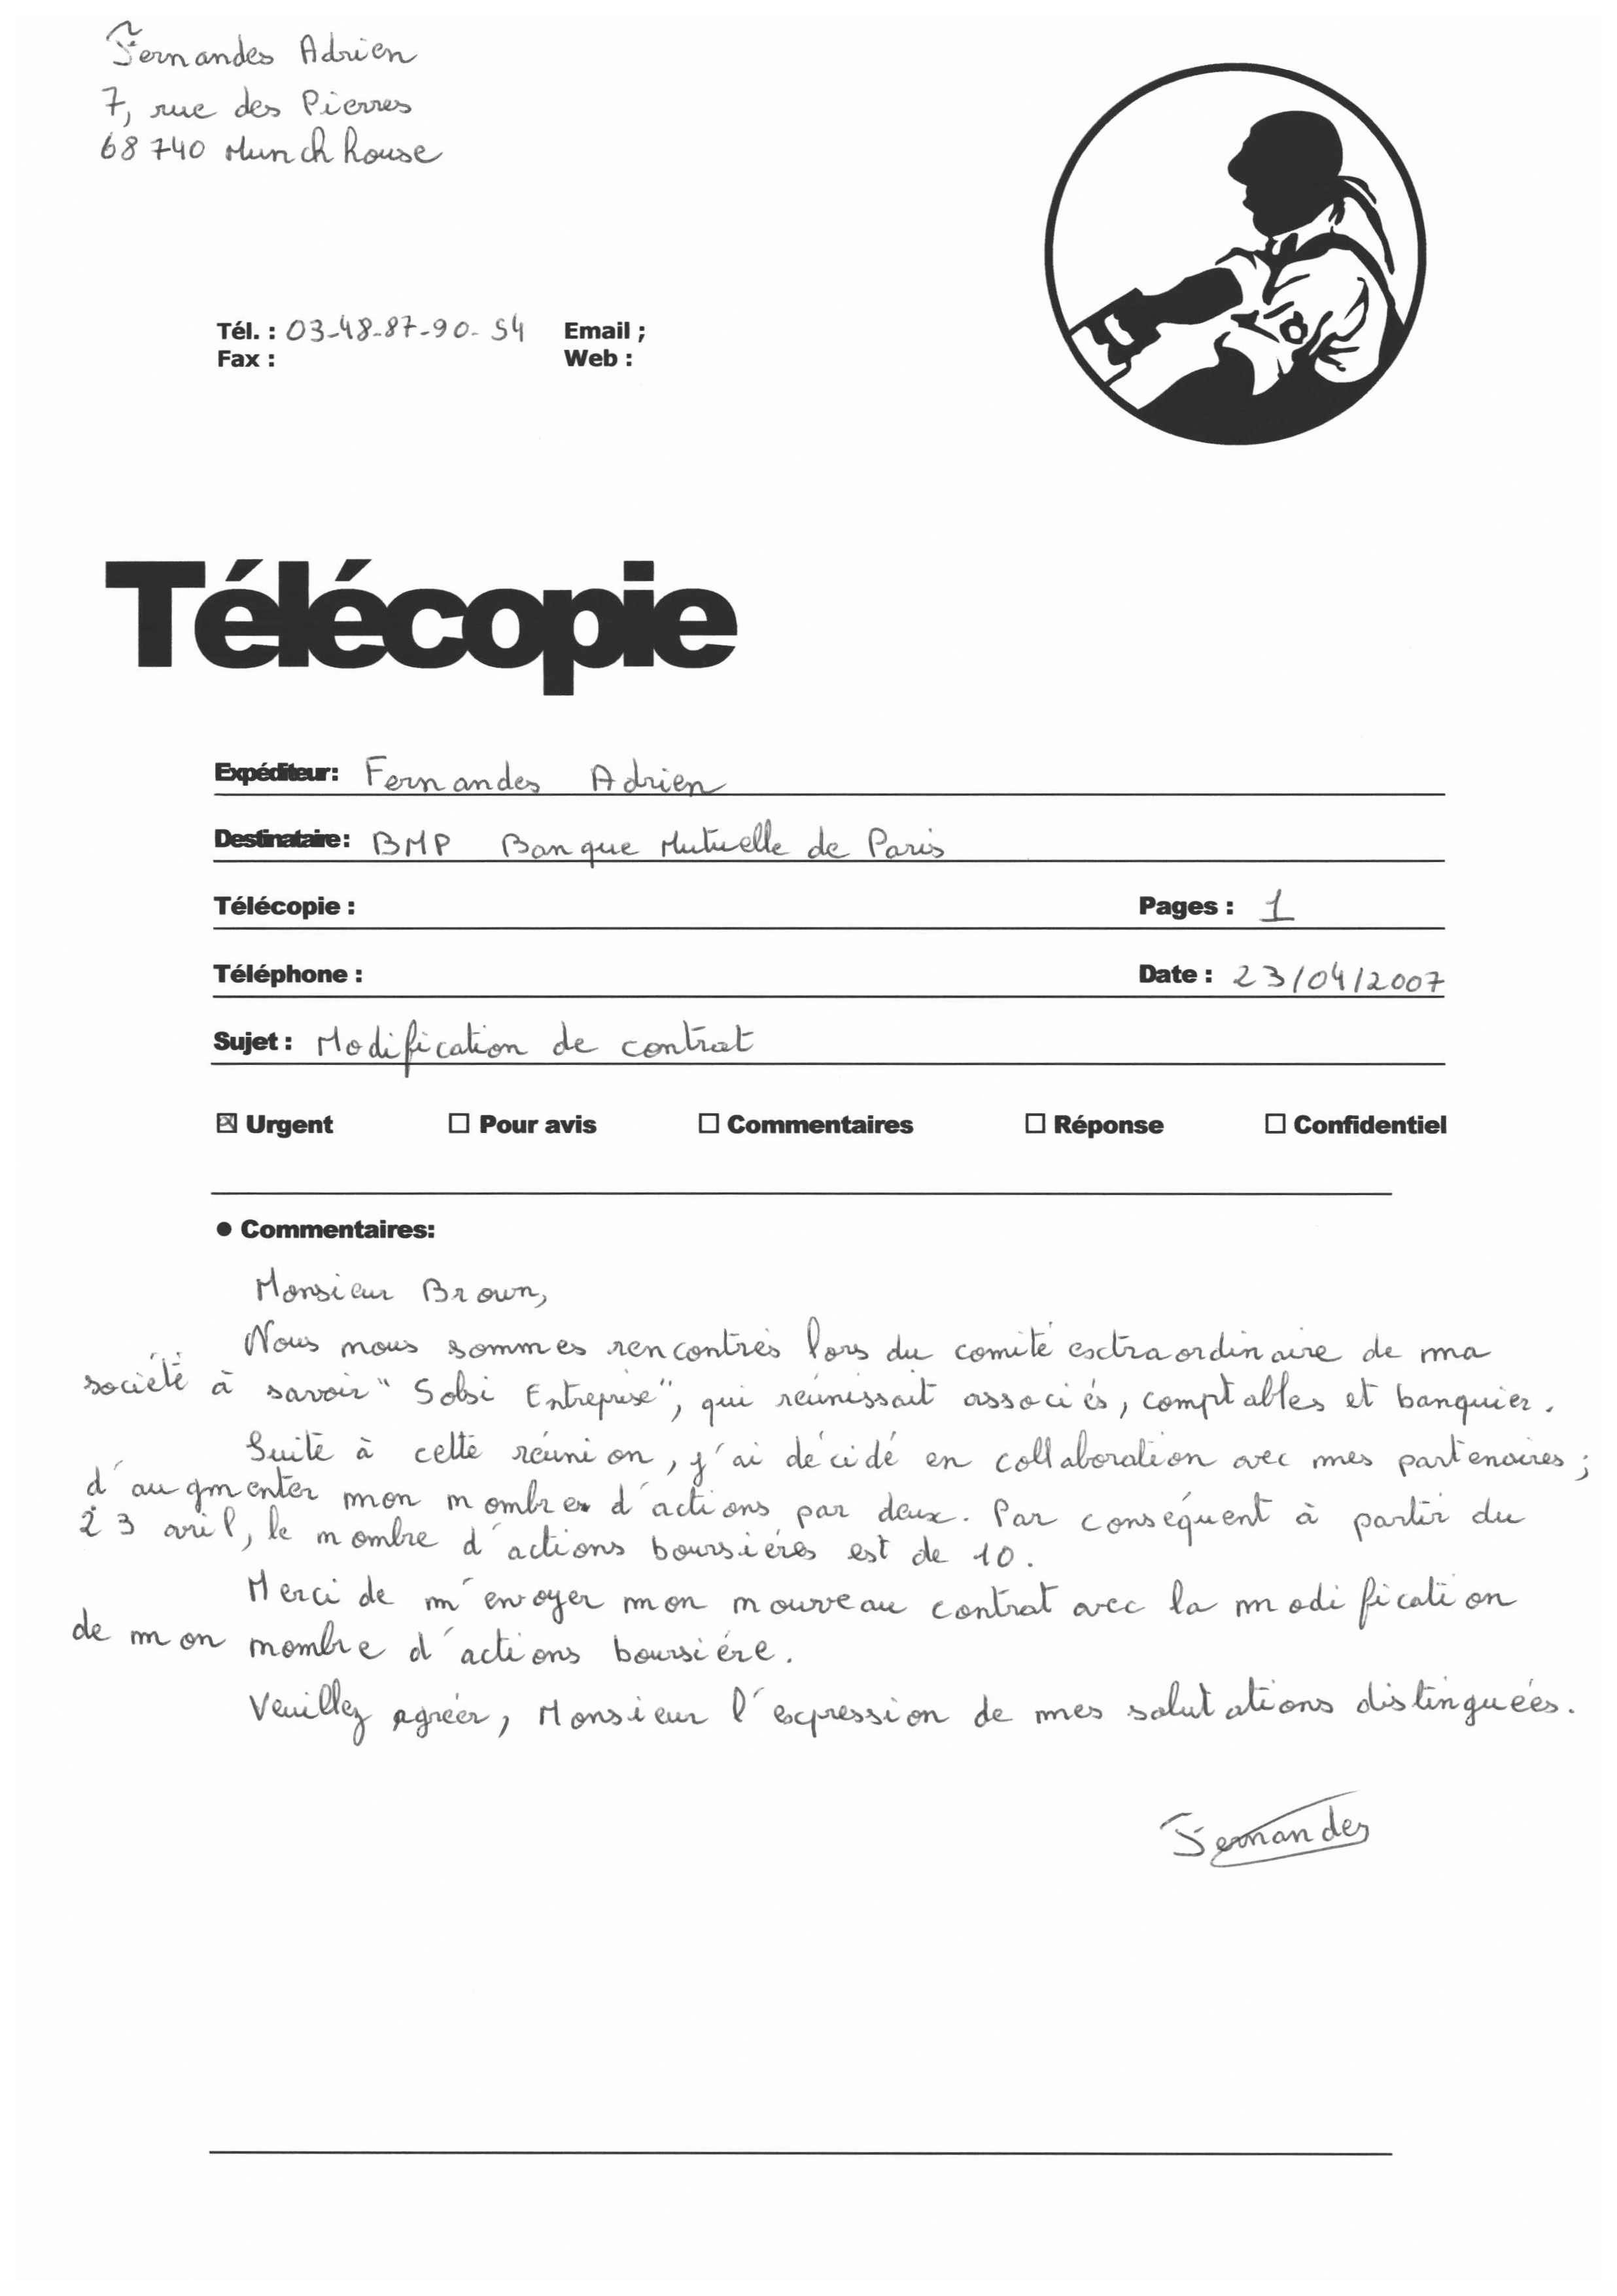 Fernandes Adrien
7, rue des Pierres
68740 Munchhouse
Tél. : 03-48-87-90-54 Email ;
Fax : Web :
Télécopie
Expéditeur: Fernandes Adrien
Destinataire: BMP Banque Mutuelle de Paris
Télécopie : Pages : 1
Téléphone : Date : 23/04/2007
Sujet : Modification de contrat
☒ Urgent ☐ Pour avis ☐ Commentaires ☐ Réponse ☐ Confidentiel
● Commentaires:
Monsieur Brown,
Nous nous sommes rencontrés lors du comité extraordinaire de ma
société à savoir "Solsi Entreprise", qui réunissait associés, comptables et banquier.
Suite à cette réunion, j'ai décidé en collaboration avec mes partenaires ;
d'augmenter mon nombre d'actions par deux. Par conséquent à partir du
23 avril, le nombre d'actions boursières est de 10.
Merci de m'envoyer mon nouveau contrat avec la modification
de mon nombre d'actions boursière.
Veuillez agréer, Monsieur l'expression de mes salutations distinguées.
Fernandes